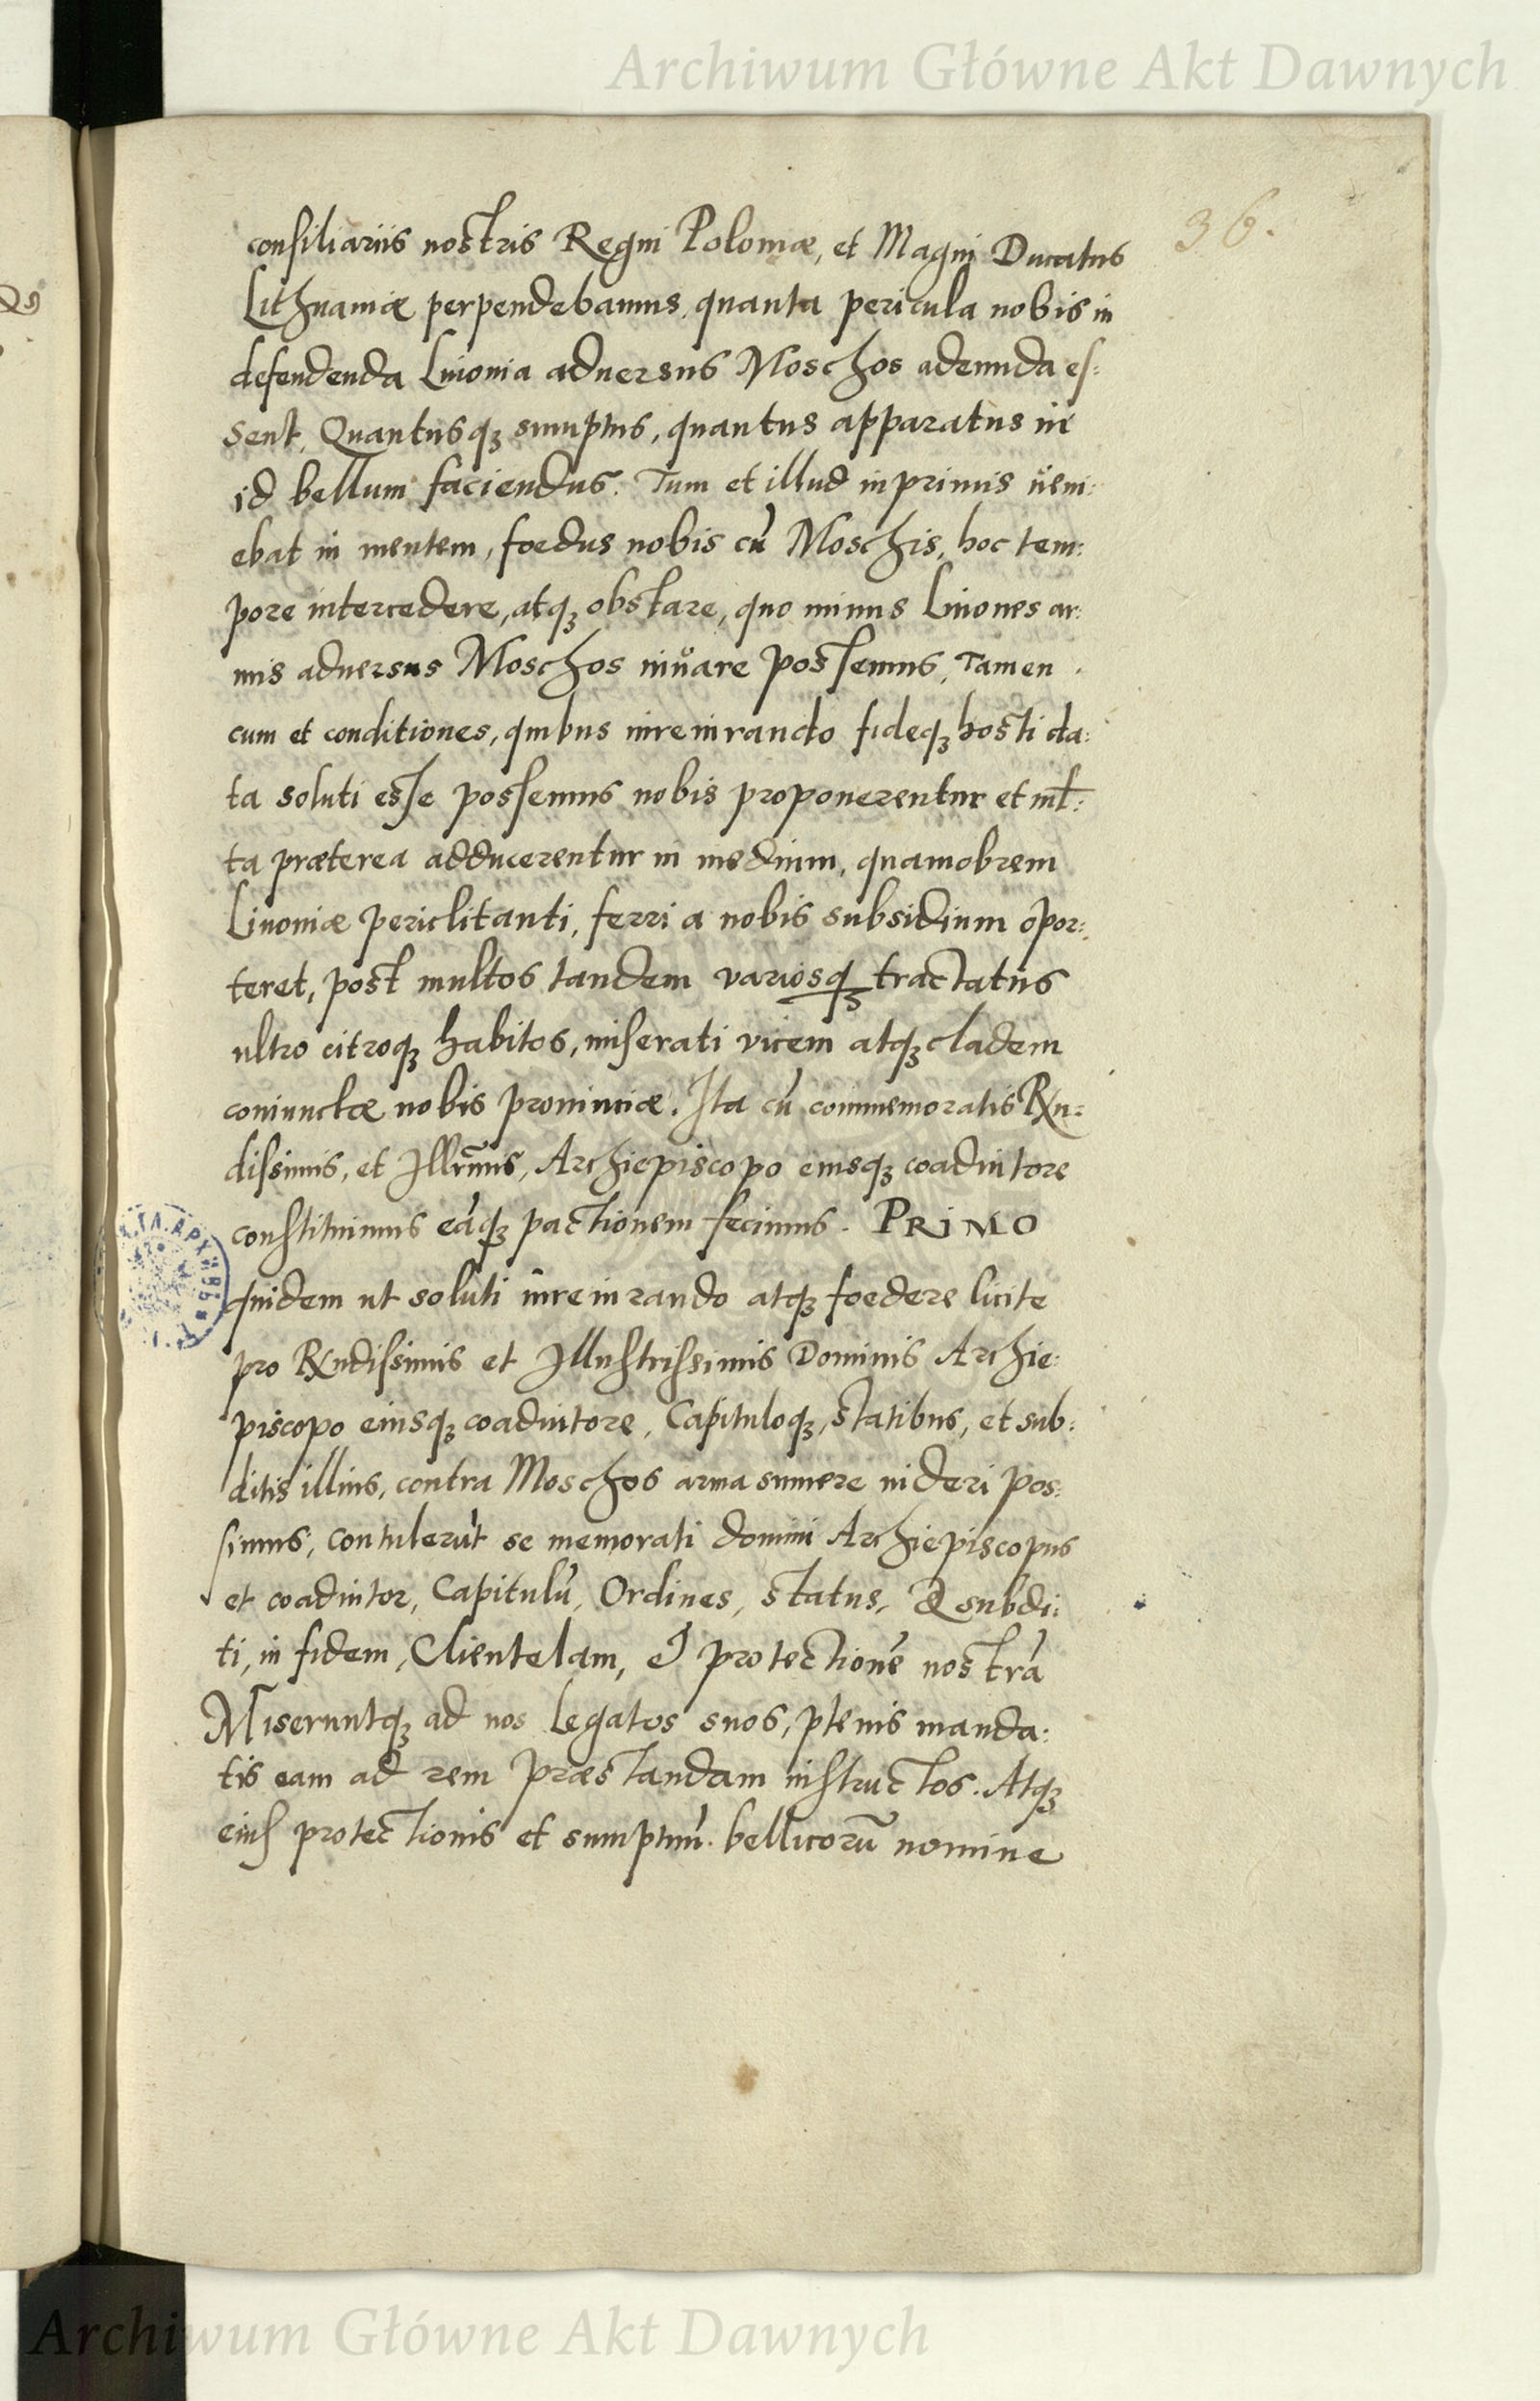 Archiwum Główne Akt Dawnych
36.
consiliariis nostris Regni Poloniæ, et Magni Ducatus
Lithuaniæ perpendebamus, quanta pericula nobis in
defendenda Liuonia aduersus Moschos adeunda es:
sent, Quantusq₃ sumptus, quantus apparatus in
id bellum faciendus. Tum et illud inprimis ueni:
ebat in mentem, foedus nobis cū Moschis, hoc tem:
pore intercedere, atq₃ obstare, quo minus Liuones ar:
mis aduersus Moschos iuuare possemus, Tamen
cum et conditiones, quibus iureiurando fideq₃ hosti da:
ta soluti esse possemus nobis proponerentur et mĺ:
ta præterea adducerentur in medium, quamobrem
Liuoniæ periclitanti, ferri a nobis subsidium opor:
teret, post multos tandem variosq₃ tractatus
ultro citroq₃ habitos, miserati vicem atq₃ cladem
coniunctæ nobis prouinciæ. Ita cū commemoratis Rn:
dissimis, et Illrmis, Archiepiscopo eiusq₃ coadiutore
constituimus eāq₃ pactionem fecimus. PRIMO
quidem ut soluti iureiurando atq₃ foedere licite
pro Rndissimis et Illustrissimis Dominis Archie:
piscopo eiusq₃ coadiutore, Capituloq₃, statibus, et sub:
ditis illius, contra Moschos arma sumere uideri pos:
simus, contulerūt se memorati domini Archiepiscopus
et coadiutor, Capitulū, Ordines, status, & subdi:
ti, in fidem, Clientelam, & protectionē nostrā
Miseruntq₃ ad nos Legatos suos, plenis manda:
tis eam ad rem præstandam instructos. Atq₃
eius protectionis et sumptuū bellicorū nomine
Archiwum Główne Akt Dawnych